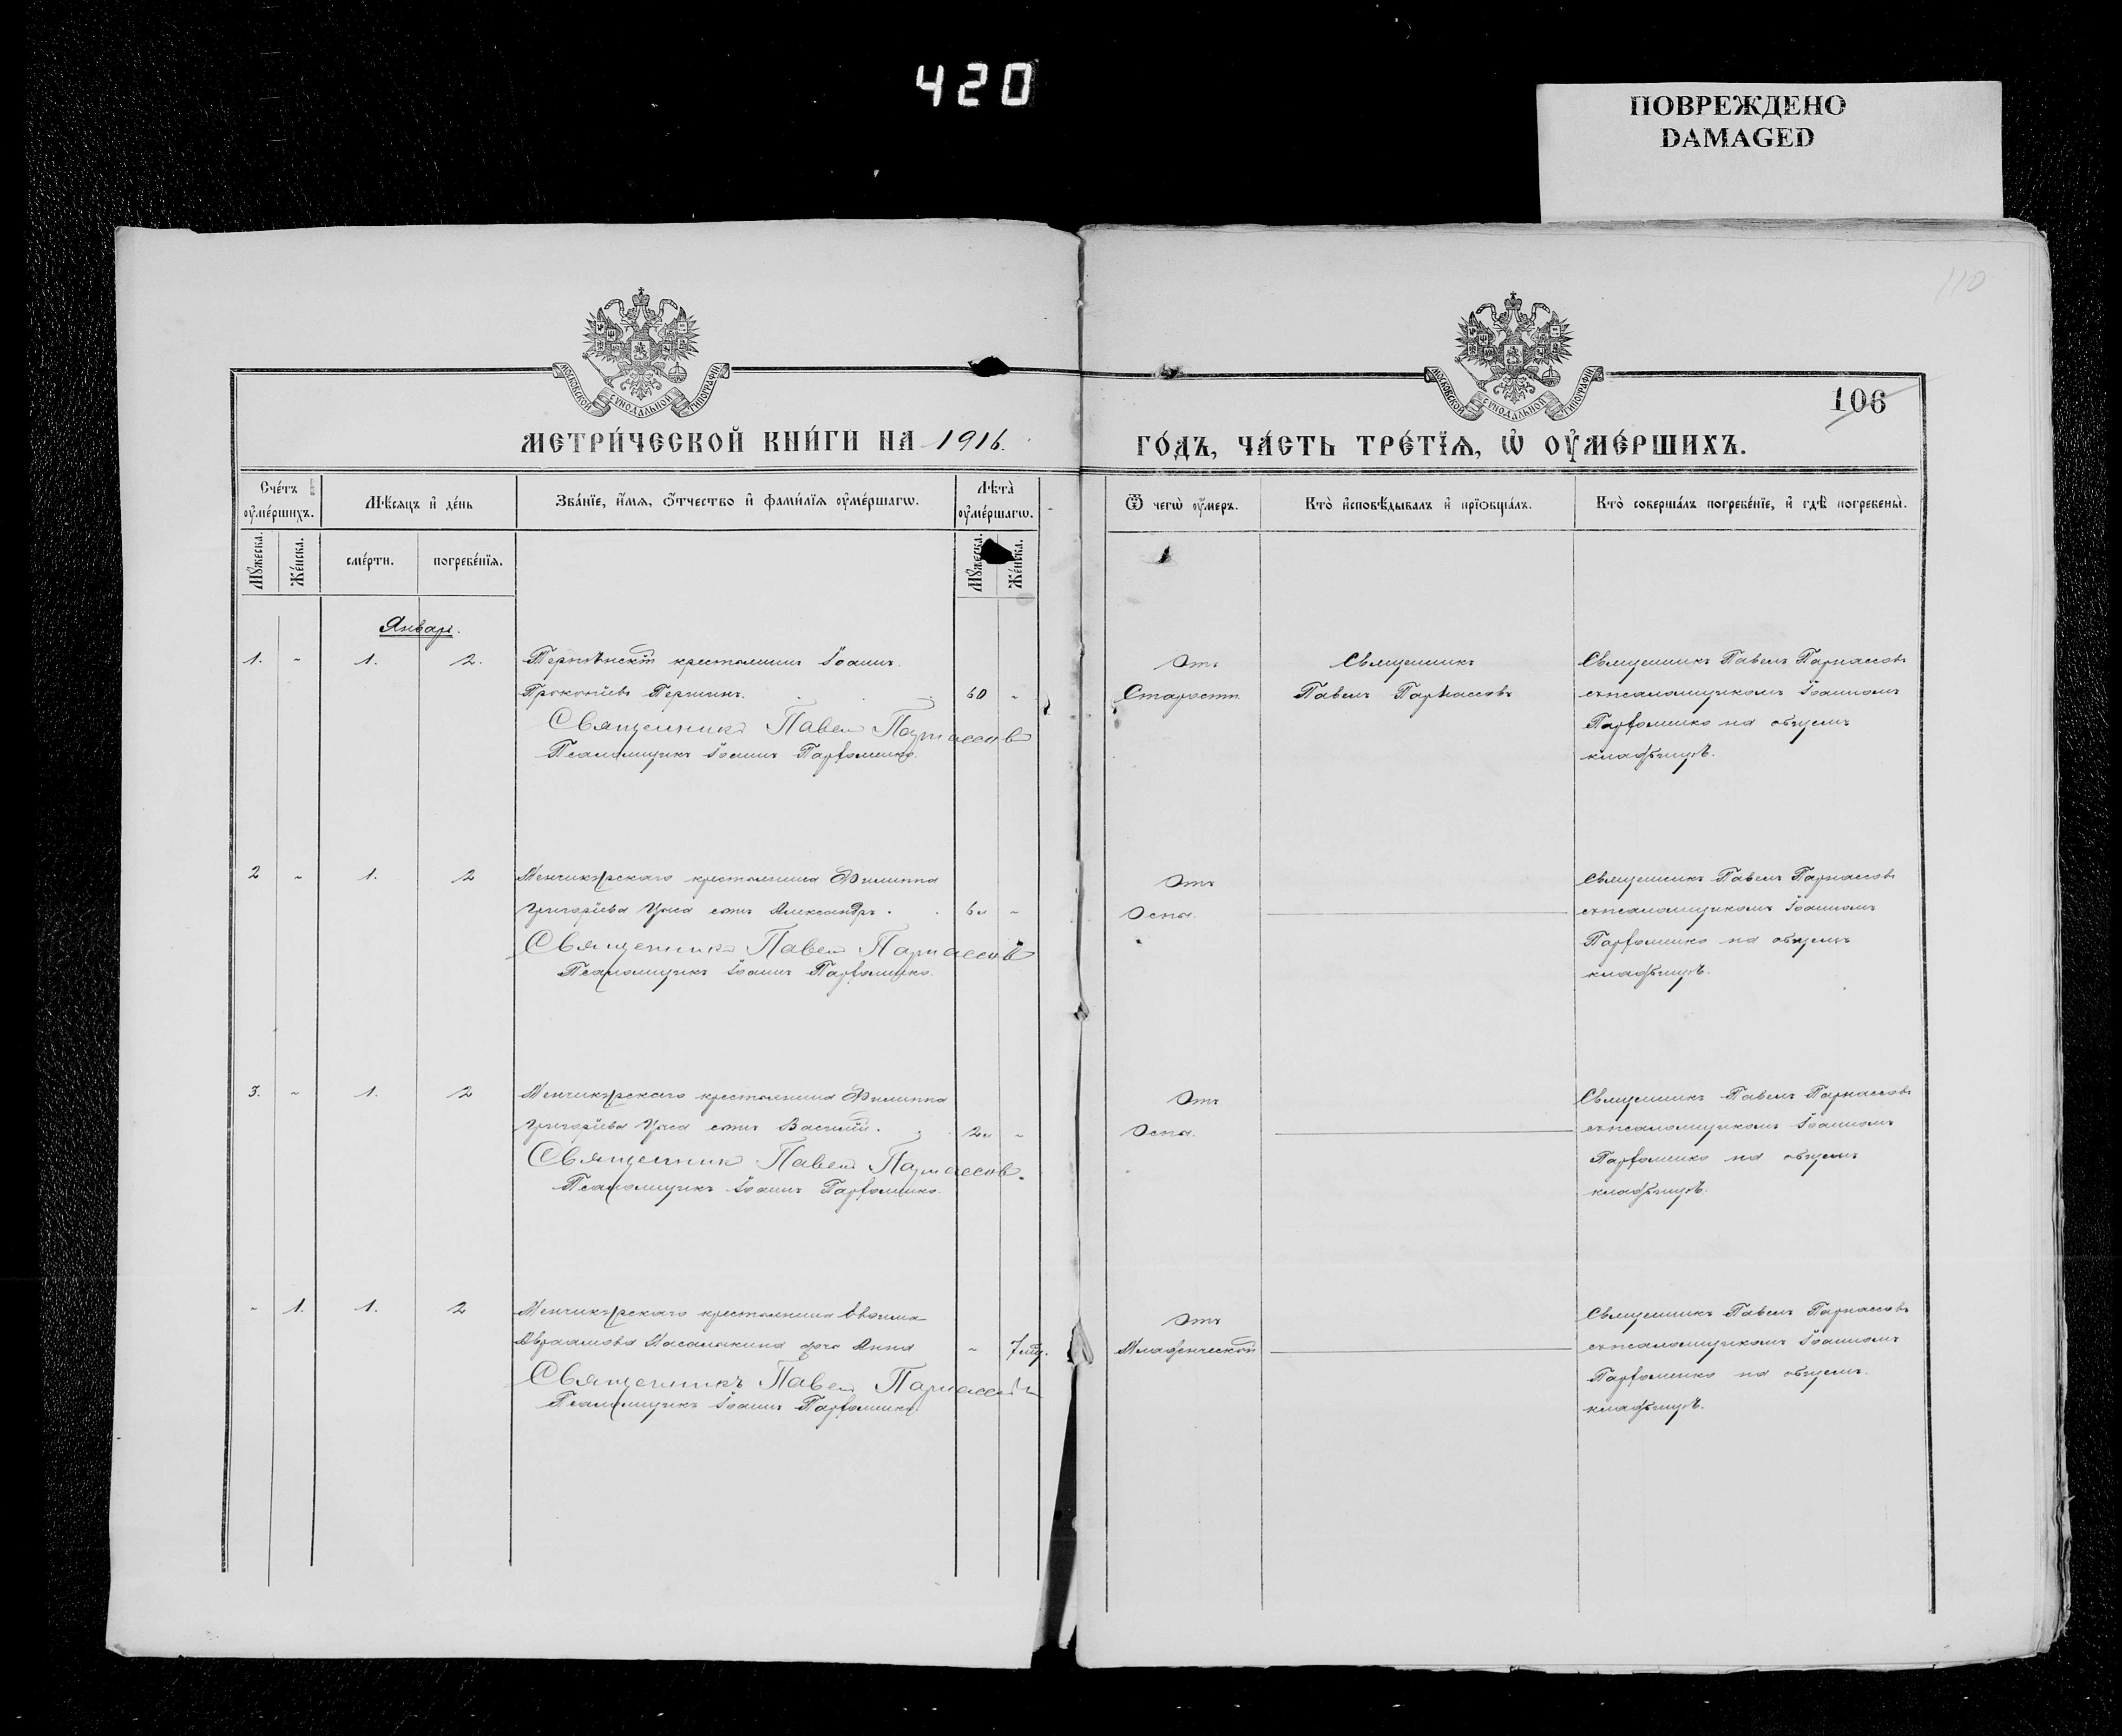 420
ПОВРЕЖДЕНО
DAMAGED
110
МОСКОВСКОЙ СѴНОДАЛЬНОЙ ТИПОГРАФІИ
МОСКОВСКОЙ СѴНОДАЛЬНОЙ ТИПОГРАФІИ
106
МЕТРИ́ЧЕСКОЙ КНИ́ГИ НА 1916.
ГО́ДЪ, ЧА́СТЬ ТРЕ́ТЇѦ, Ѡ҆ ОУ҆МЕ́РШИХЪ.
Сче́тъ оу҆ме́ршихъ.
Мѣ́сяцъ и҆ де́нь
Зва́нїе, и҆́мѧ, ѻ҆́тчество и҆ фами́лїѧ оу҆ме́ршагѡ.
Лѣ́та̀ оу҆ме́ршагѡ.
Ѿ чегѡ̀ оу҆́меръ.
Кто̀ и҆сповѣ́дывалъ и҆ прїѡбща́лъ.
Кто̀ соверша́лъ погребе́нїе, и҆ гдѣ̀ погребены̀.
Мꙋ́жеска.
Же́нска.
сме́рти.
погребе́нїѧ.
Мꙋ́жеска.
Же́нска.
Январь.
1. - 1. 2. крестьянинъ Іоаннъ
Прокопіевъ 60 -
Священникъ Павелъ Парнассовъ
Псаломщикъ Іоаннъ Парфоменко.
Отъ
Старости
Священникъ
Павелъ Парнассовъ
Священникъ Павелъ Парнассовъ
съ псаломщикомъ Іоанномъ
Парфоменко на общемъ
кладбищѣ.
2 - 1. 2 Менчикурскаго крестьянина Филиппа
Григоріева сынъ Александръ. 6 -
Священникъ Павелъ Парнассовъ
Псаломщикъ Іоаннъ Парфоменко.
Отъ
Оспы.
Священникъ Павелъ Парнассовъ
съ псаломщикомъ Іоанномъ
Парфоменко на общемъ
кладбищѣ.
3. - 1. 2 Менчикурскаго крестьянина Филиппа
Григоріева сынъ Василій. 2 -
Священникъ Павелъ Парнассовъ.
Псаломщикъ Іоаннъ Парфоменко.
Отъ
Оспы.
Священникъ Павелъ Парнассовъ
съ псаломщикомъ Іоанномъ
Парфоменко на общемъ
кладбищѣ.
- 1. 1. 2 Менчикурскаго крестьянина
Авраамова дочь Анна - 7 мц.
Священникъ Павелъ Парнассовъ
Псаломщикъ Іоаннъ Парфоменко.
Отъ
Младенческой
Священникъ Павелъ Парнассовъ
съ псаломщикомъ Іоанномъ
Парфоменко на общемъ
кладбищѣ.